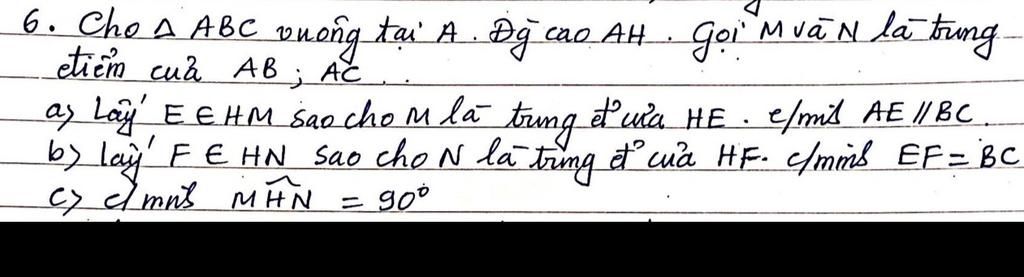 6. Cho Δ ABC vuông tại A. Đg cao AH. Gọi M và N là trung
điểm của AB; AC.
a) Lấy E ∈ HM sao cho M là trung đ' của HE. c/mih AE // BC.
b) lấy F ∈ HN sao cho N là trung đ' của HF. c/minh EF = BC
c) c/mnh MĤN = 90°